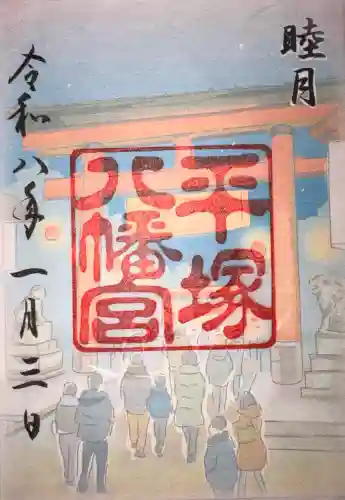 睦月
平塚
八幡宮
令和八年一月三日